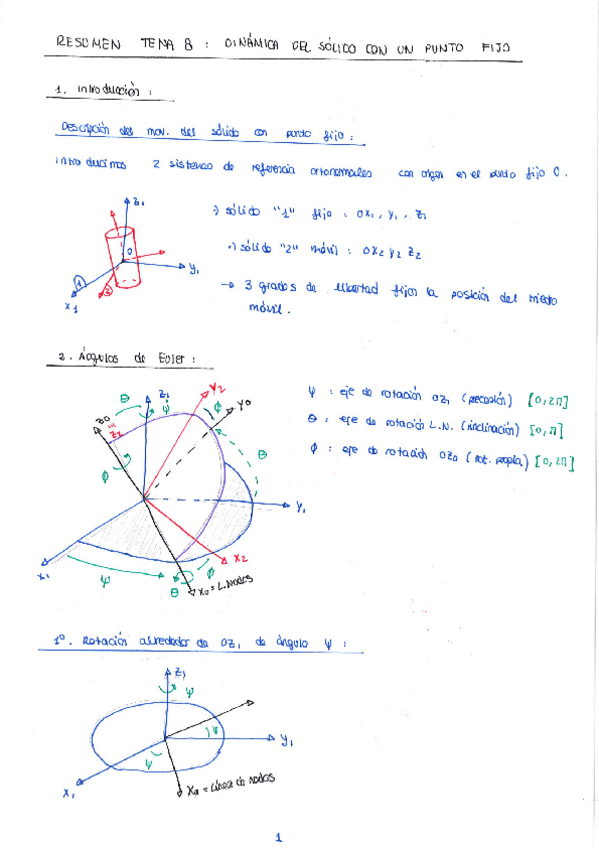 RESUMEN TEMA 8 : DINÁMICA DEL SÓLIDO CON UN PUNTO FIJO
1. Introducción :
Descripción del mov. del sólido con punto fijo :
Introducimos 2 sistemas de referencia ortonormales con origen en el punto fijo O.
Z1
O
Y1
X1
1
2
·) sólido "1" fijo : OX1, Y1, Z1
·) sólido "2" móvil : OX2 Y2 Z2
→ 3 grados de libertad fijan la posición del
móvil.
2. Ángulos de Euler :
Ψ : eje de rotación OZ1 (precesión) [0,2π]
θ : eje de rotación L.N. (inclinación) [0,π]
ϕ : eje de rotación OZ0 (rot. propia) [0,2π]
Z0
Z2
θ
Z1
Ψ
Y2
ϕ
Y0
θ
ϕ
Y1
X1
Ψ
θ
ϕ
X2
X0 = L.Nodos
1º. Rotación alrededor de OZ1 de ángulo Ψ :
Z1
Ψ
Ψ
Y1
Ψ
X1
X0 = Línea de nodos
1